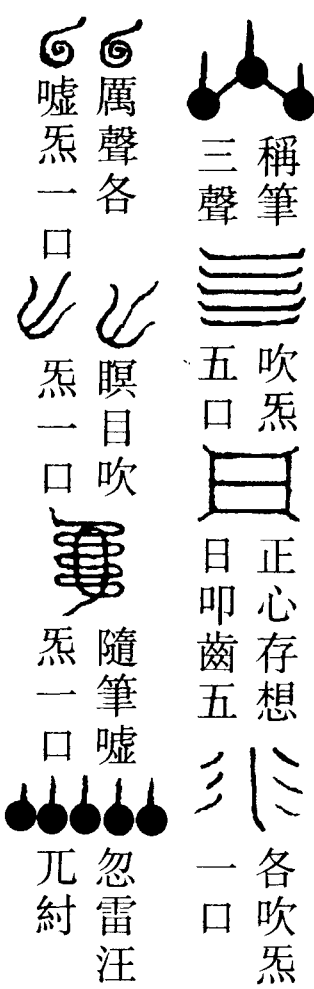 稱筆
三聲
吹炁
五口
正心存想
日叩齒五
各吹炁
一口
厲聲各
噓炁一口
瞑目吹
炁一口
隨筆噓
炁一口
忽雷汪
兀紂